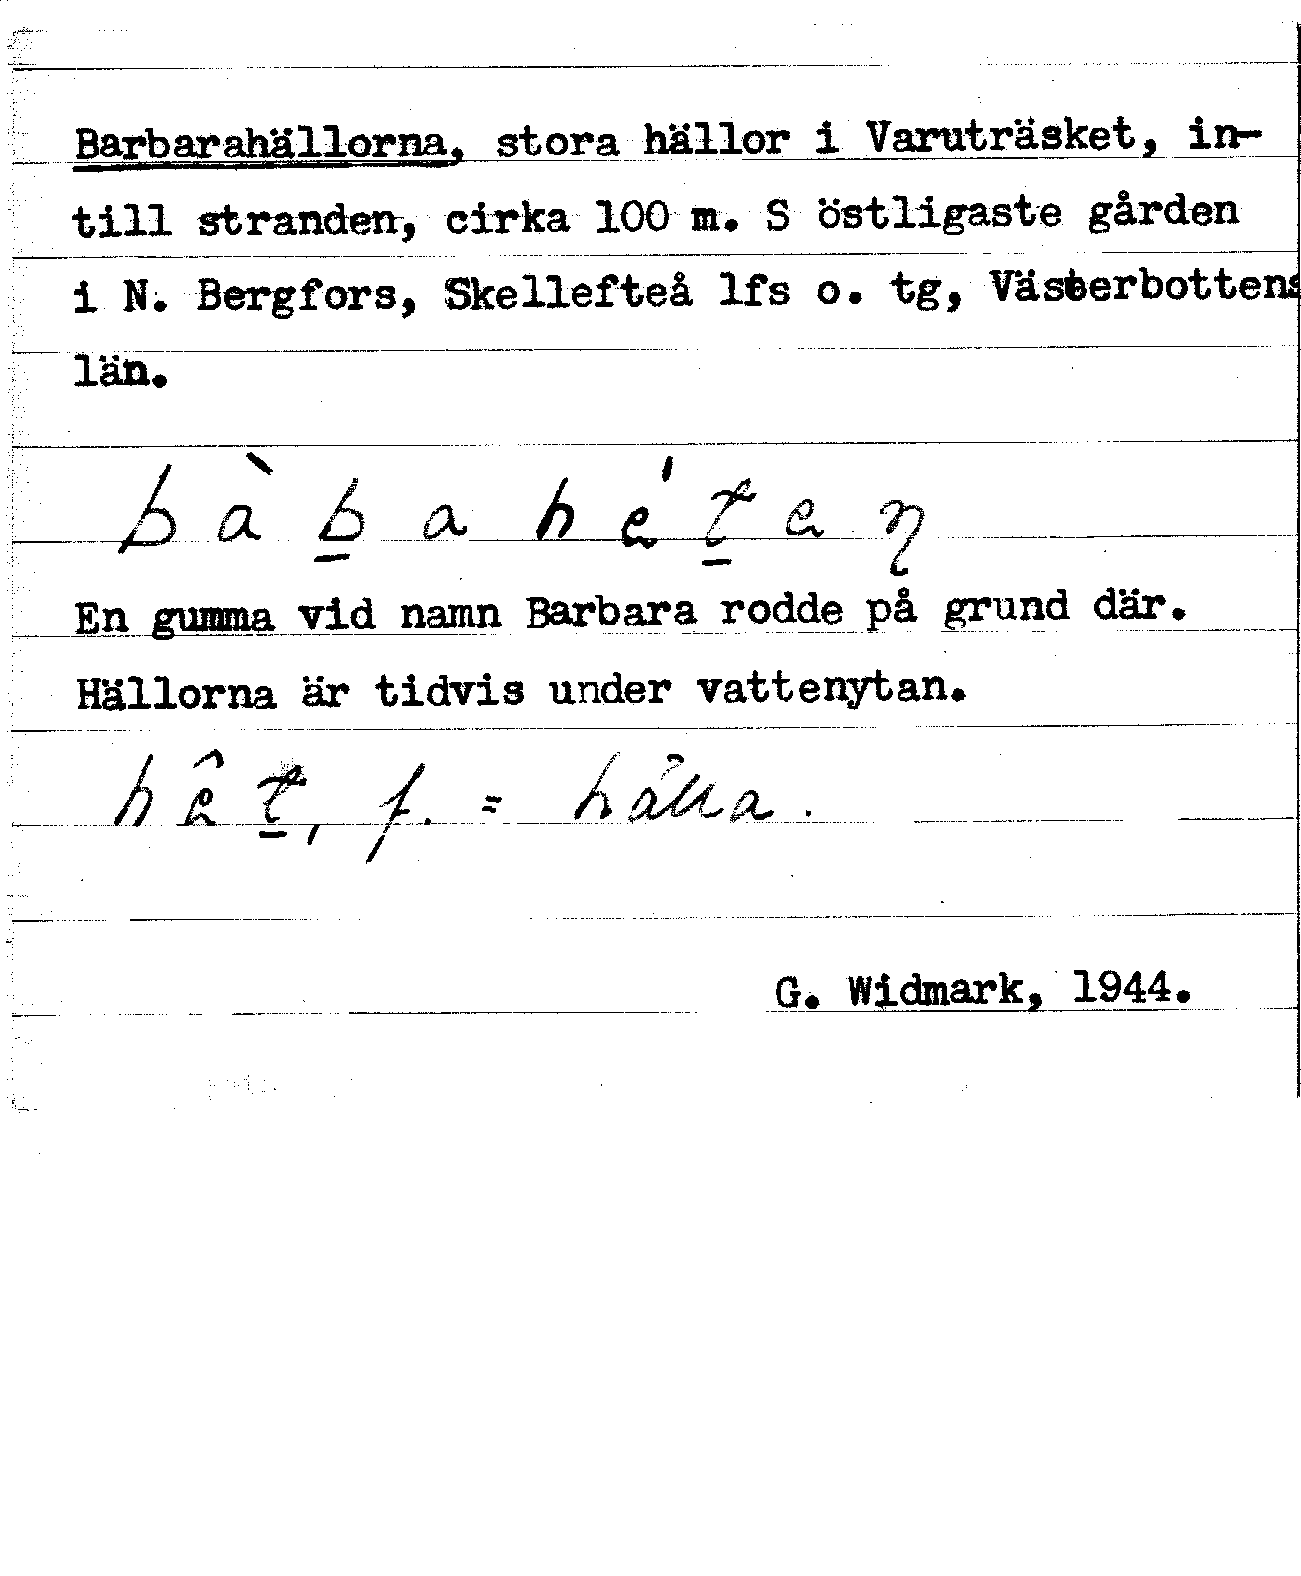 Barbarahällorna, stora hällor i Varuträsket, in-
till stranden, cirka 100 m. S östligaste gården
i N. Bergfors, Skellefteå lfs o. tg, Västerbottens
län.
En gumma vid namn Barbara rodde på grund där.
Hällorna är tidvis under vattenytan.
f. = hälla.
G. Widmark, 1944.